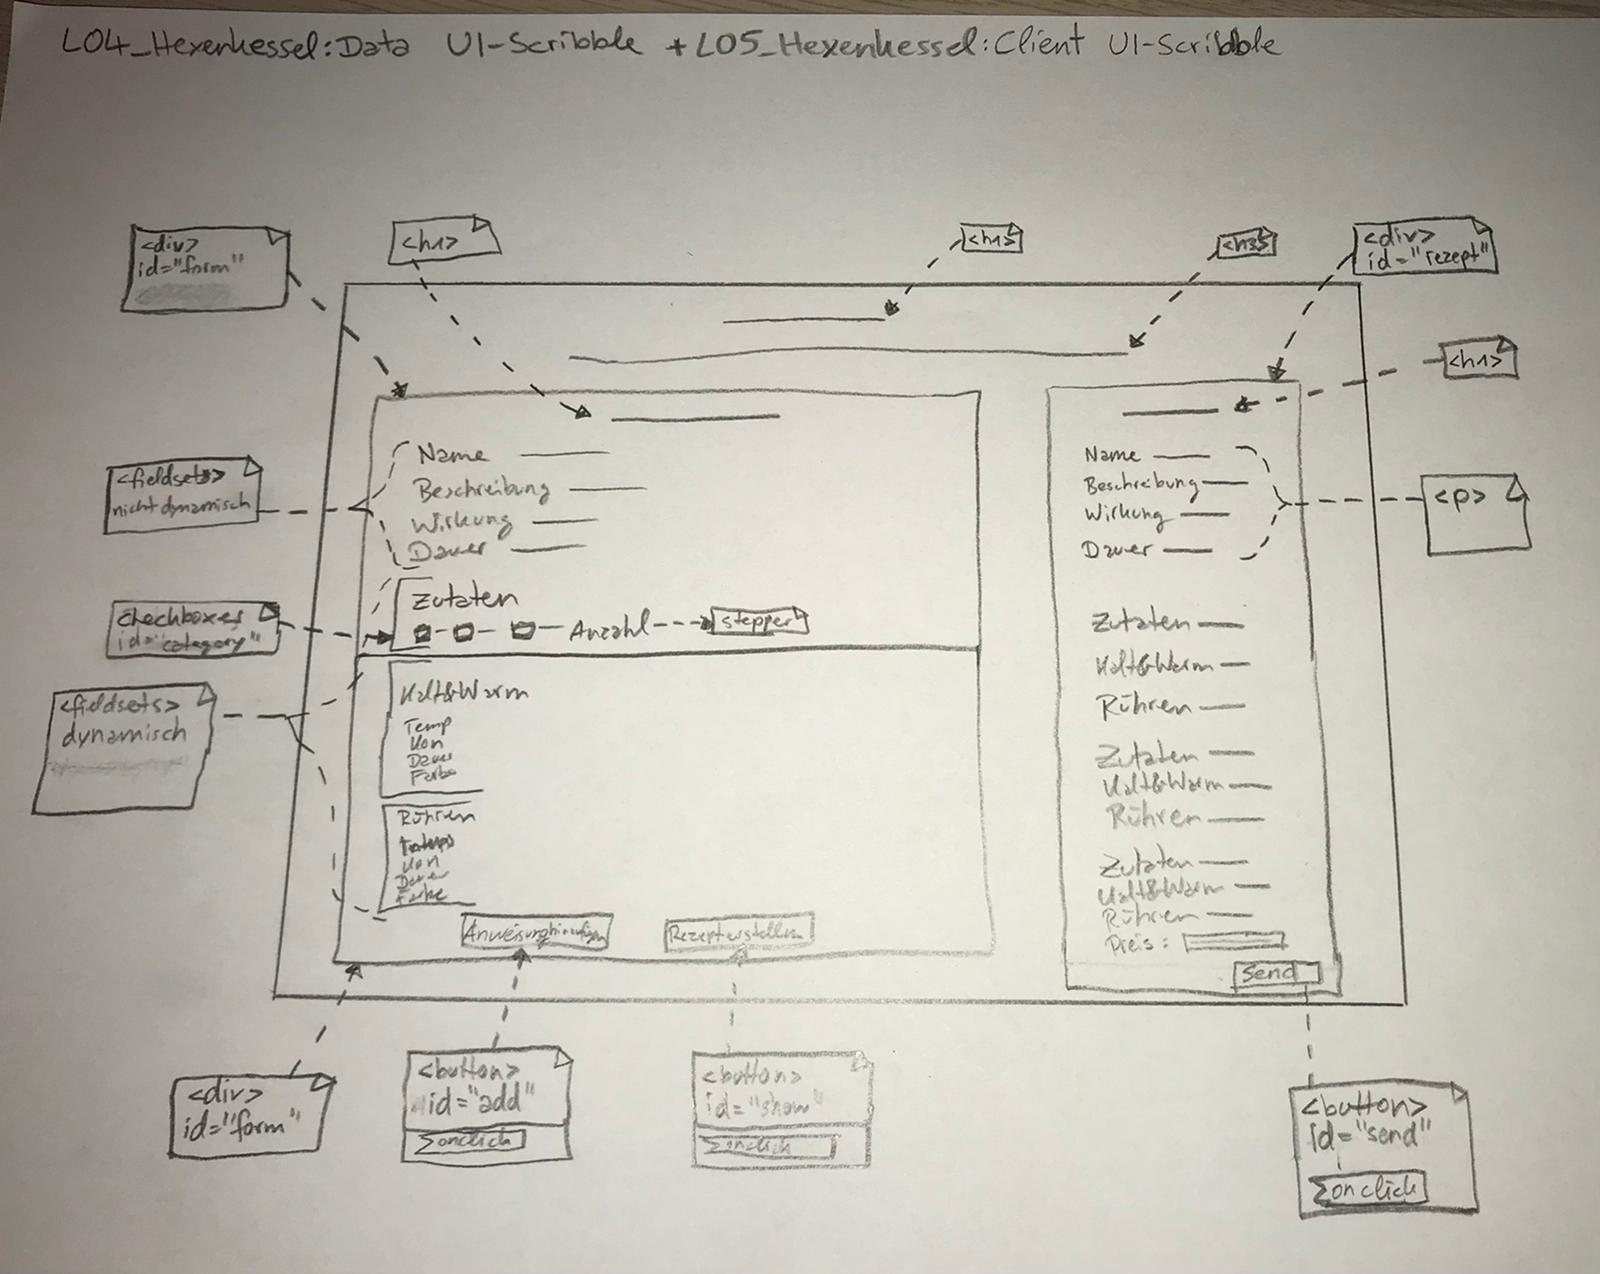 L04_Hexenkessel:Data UI-Scribble + L05_Hexenkessel:Client UI-Scribble
<div>
id="form"
<h1>
<h1>
<h3>
<div>
id="rezept"
<h1>
<fieldsets>
nicht dynamisch
Name
Beschreibung
Wirkung
Dauer
Name
Beschreibung
Wirkung
Dauer
<p>
Checkboxes
id="category"
Zutaten
Anzahl
stepper
<fieldsets>
dynamisch
Kalt&Warm
Temp
Von
Dauer
Farbe
Rühren
Von
Dauer
Farbe
Anweisung hinzufügen
Rezept erstellen
Zutaten
Kalt&Warm
Rühren
Zutaten
Kalt&Warm
Rühren
Zutaten
Kalt&Warm
Rühren
Preis:
Send
<div>
id="form"
<button>
id="add"
onclick
<button>
id="show"
onclick
<button>
id="send"
onclick